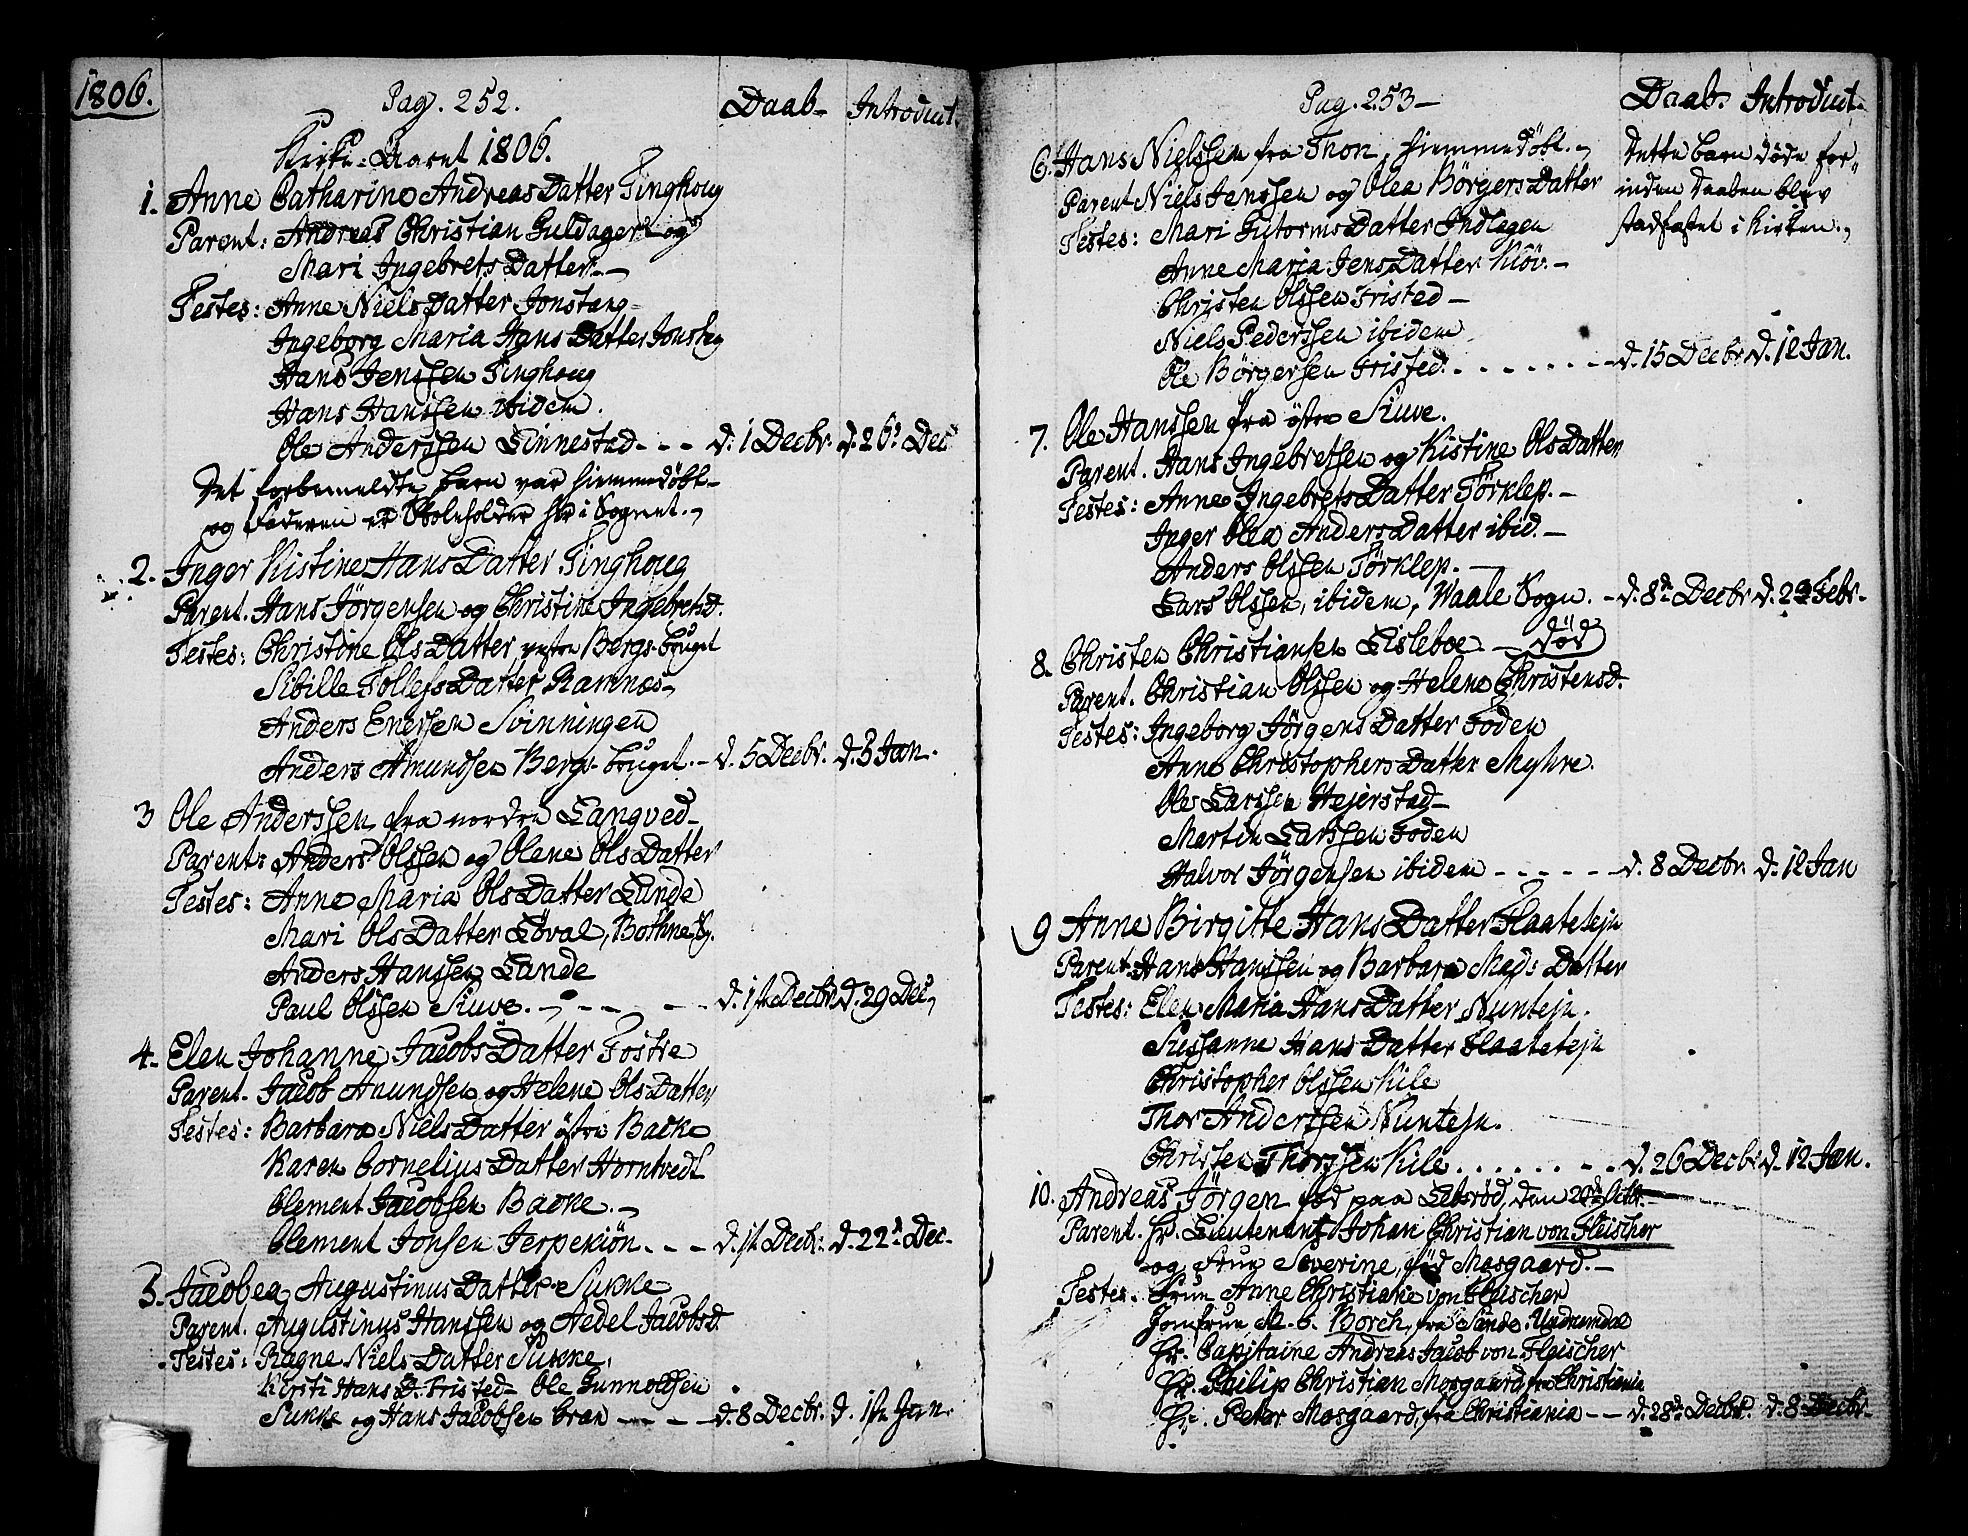 1806.
Pag. 252.
Daab- Introduct.
Kirke-Aaret 1806.
1. Anne Catharine AndreasDatter Tinghoug
Parent: Andreas Christian Guldager og
Mari IngebretsDatter.
Testes: Anne NielsDatter Jonstang
Ingeborg Maria HansDatter Jonstang
Hans Jenssen Tinghoug
Hans Hanssen ibidem.
Ole Anderssen Linnestad - - - d. 1 Decbr. d. 26. Dec
Det forbemeldte barn var hiemmedöbt
og Faderen er Skoleholder her i Sognet.
2. Inger Kistine HansDatter Tinghoug
Parent. Hans Jörgensen og Christine Ingebretsd.
Testes: Christine OlsDatter vestre Bergs-bruget
Sibille TollefsDatter Ramnæs
Anders Enersen Svinningen
Anders Amundsen Bergs-bruget. - d. 5 Decbr. d. 3 Jan.
3 Ole Anderssen fra nordre Langved
Parent: Anders Olssen og Olene OlsDatter
Testes: Anne Maria OlsDatter Lunde
Mari OlsDatter Löval, Bothne S.
Anders Hanssen Lande
Paul Olssen Siuve. - - - d. 1ste Decbr d. 29 Dec
4. Elen Johanne JacobsDatter Fostre
Parent. Jacob Anundsen og Helene OlsDatter
Testes: Barbara NielsDatter östre Backe
Karen CorneliusDatter Horntvedt
Clement Jacobsen Backe.
Clement Jonsen Jerpekiön - - - d. 1ste Decbr. d. 22. Dec.
5. Jacobea AugustinusDatter Sukke
Parent. Augustinus Hanssen og Aedel Jacobsd.
Testes: Ragne NielsDatter Sukke.
Kirsti Hans D. Fristed Ole Gunnolssen
Sukke og Hans Jacobsen bran - - - d. 8 Decbr. d. 1ste Jan.
Pag. 253
Daab. Introduct.
6. Hans Nielssen fra Thon, hiemmedöbt.
Parent Niels Jenssen og Olea BörgersDatter
Testes: Mari GutormsDatter Indlegen
Anne Maria JensDatter Klöv.
Christen Olssen Fristed
Niels Pederssen ibidem
Ole Börgersen Fristed. - - - d. 15 Decbr d. 12 Jan.
Dette barn döde for-
inden Daaben blev
stadfæstet i Kirken.
7. Ole Hanssen fra östre Siuve.
Parent. Hans Ingebretsen og Kistine OlsDatter
Testes: Anne IngebretsDatter Törklep.
Inger Olea AndersDatter ibid.
Anders Olssen Törklep.
Lars Olssen, ibidem, Waale Sogn. - d. 8de Decbr d. 2 Febr.
8. Christen Christiansen Lisleboe - död
Parent. Christian Olssen og Helene Christensd.
Testes: Ingeborg JörgensDatter Foden
Anne ChristophersDatter Myhre.
Ole Larssen Hejerstad
Martin Larssen Foden
Halvor Jörgensen ibidem - - - d. 8 Decbr. d. 12 Jan
9 Anne Birgitte HansDatter Flaatetejn
Parent. Hans Hanssen og Barbara MadsDatter
Testes: Elen Maria HansDatter Nuntejn.
Sussanne HansDatter Flaatetejn
Christopher Olssen Kile
Thor Anderssen Nuntejn.
Christen Thorssen Kile - - - d. 26 Decbr d. 12 Jan.
10. Andreas Jörgen föd paa Lebsröd, den 20de Octbr.
Parent. Hr. Lieutenant Johan Christian von Fleischer
og Frue Severine, föd Mosgaard.
Testes. Frue Anne Christiane von Fleischer
Jomfrue M. C. Borch, fra Sande Undrumdal
Hr. Capitaine Andreas Jacob von Fleischer
Hr. Philip Christian Mosgaard fra Christiania
Hr. Peter Mosgaard, fra Christiania - - d. 28de Decbr. d. 8 Decbr.